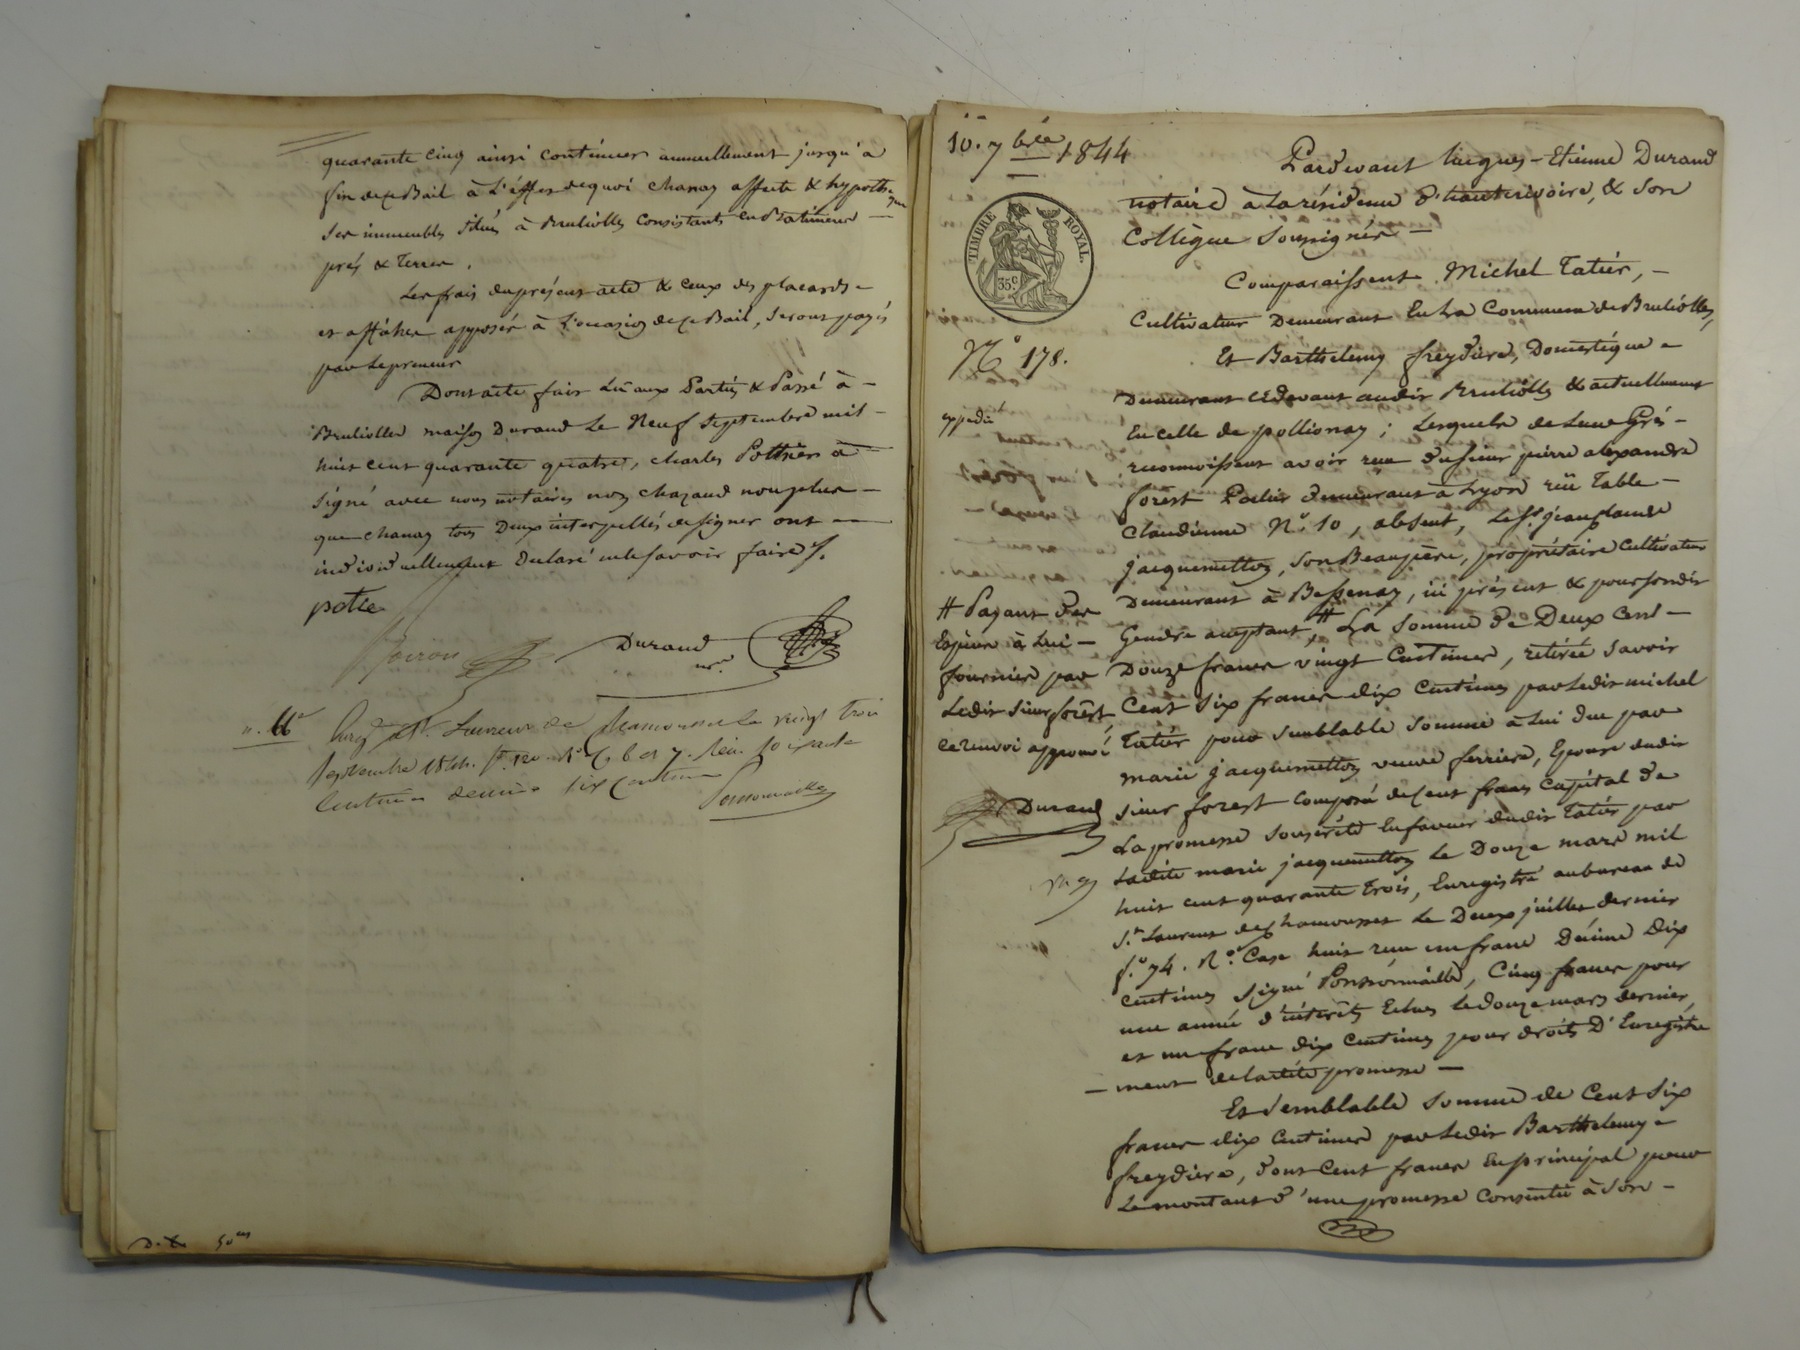 quarante cinq ainsi continuer annuellement jusqu'à
fin de ce Bail à L'éffet de quoi chanay affecte & hypothèque
ses immeubles situés à Bruliolles consistants en Batiments —
prés & terres.
Les frais du présent acte & ceux des placards —
et affiches apposés à L'occasion de ce Bail, seront payés
par Le preneur
Dont acte fait Lu aux Parties & Passé à —
Brulioller maison Durand Le Neuf Septembre mil —
huit cent quarante quatre, charles Pothier a —
signé avec nous notaires non chazaud non plus —
que chanay tous Deux interpellés de signer ont —
individuellement déclaré ne le savoir faire
potie
Durand
nre
Enregistré à St Laurent de Chamousset le vingt trois
Septembre 1844. f° 120 R° C. 6 et 7. Reçu
Centimes décime six centimes
Ponsonnaille
50 ces
10. 7bre 1844
TIMBRE ROYAL.
35 c
N° 178.
expedié
Pardevant Jacques-Etienne Durand
notaire à La résidence d'hauterivoire, & son
Collègue Soussignés —
Comparaissent Michel Tatier, —
Cultivateur Demeurant En La Commune de Brulioller,
Et Barthelemy freydiere, Domestique —
Demeurant cidevant audit Brulioller & actuellement
En celle de pollionay; Lesquels de Leur Gré —
reconnoissent avoir reçu du sieur pierre alexandre
forest Demeurant à Lyon rüe Table —
Claudienne N° 10, absent, Le Sr jean claude
jacquemetton, son Beaupère, propriétaire Cultivateur
Demeurant à Bessenay, ici présent & pour sondit
Gendre acceptant, # La Somme De Deux Cent —
Douze francs vingt Centimes, retirée savoir
Cent Six francs dix Centimes par Ledit michel
Tatier pour semblable somme à Lui due par
marie jacquemetton veuve ferriere, Epouse dudit
sieur forest composé de Cent francs Capital de
La promesse souscrite En faveur dudit Tatier par
Ladite marie jacquemetton Le Douze mars mil
huit cent quarante Trois, Enregistré au bureau de
St Laurent de chamousset Le Deux juillet dernier
f° 74. R° Case huit reçu un franc Décime Dix
Centimes signé Ponsonnaille, Cinq francs pour
une année d'intérêts Echus Le douze mars dernier,
et un franc dix Centimes pour droits D'Enregistre
— ment de Ladite promesse —
Et Semblable Somme de Cent Six
francs dix Centimes par Ledit Barthelemy —
freydiere, dont Cent francs En principal pour
Le montant d'une promesse Consentie à Son —
# Payant Des
Espèces à Lui —
fournies par
Ledit sieur forêst
ce renvoi approuvé
Durand